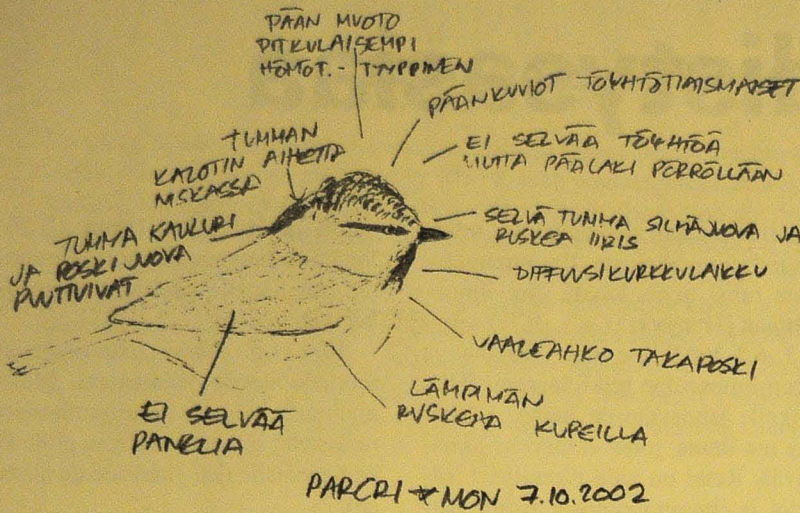 PÄÄN MUOTO
PITKULAISEMPI
HÖMÖT.-TYYPPINEN
PÄÄNKUVIOT TÖYHTÖTIAISMAISET
EI SELVÄÄ TÖYHTÖÄ
MUTTA PÄÄLAKI PÖRRÖLLÄÄN
TUMMAN
KALOTIN AIHETTA
NISKASSA
SELVÄ TUMMA SILMÄJUOVA JA
RUSKEA IIRIS
TUMMA KAULURI
JA POSKIJUOVA
PUUTTUIVAT
DIFFUUSI KURKKULAIKKU
VAALEAHKO TAKAPOSKI
LÄMPIMÄN
RUSKEAA KUPEILLA
EI SELVÄÄ
PANELIA
PARCRI * MON 7.10.2002